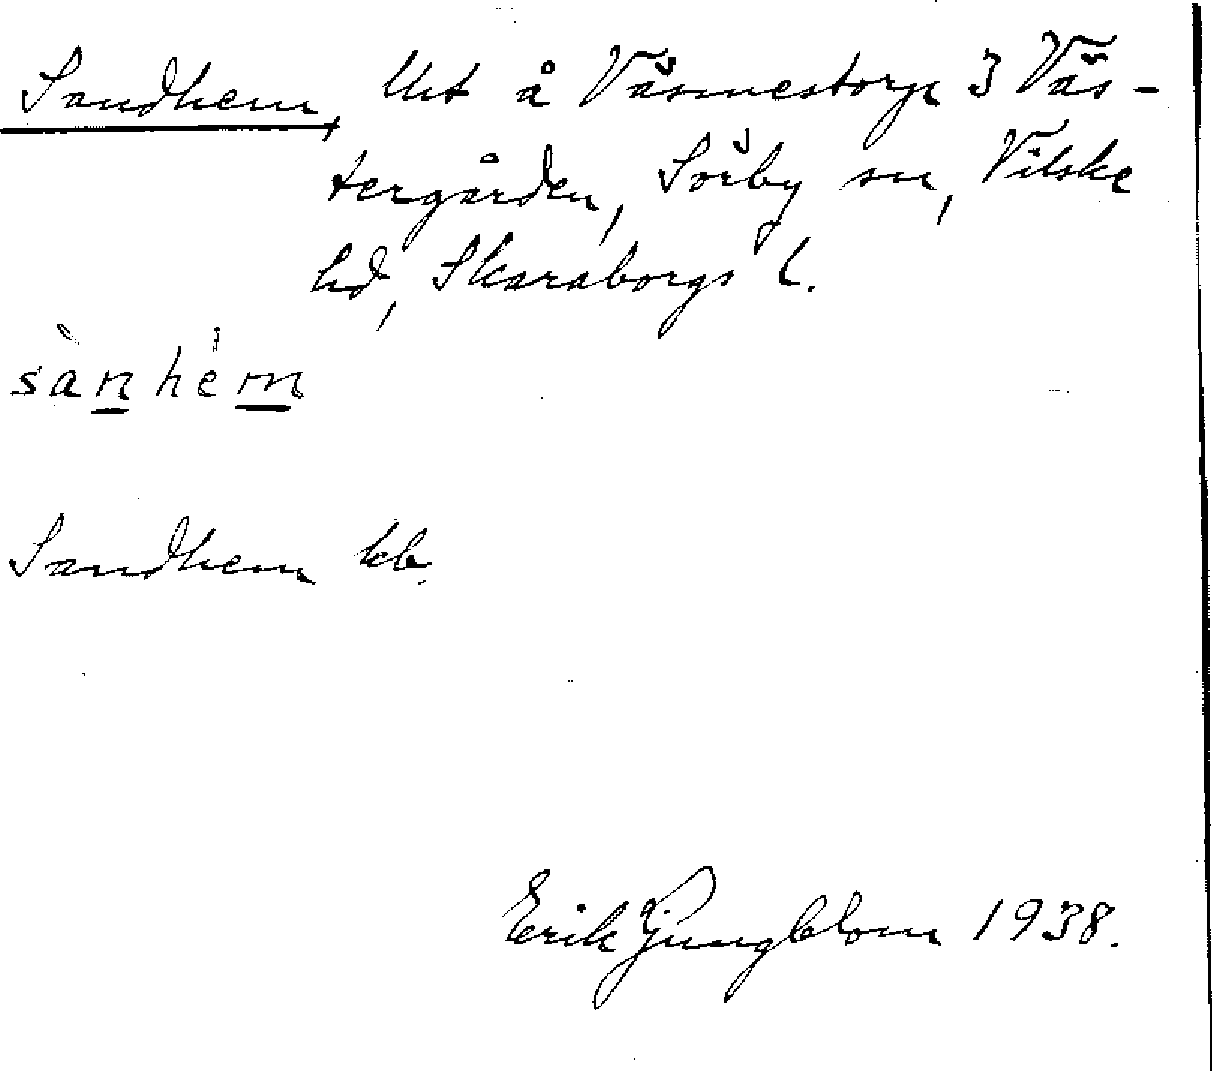 Sandhem, Uht å Väsmestorp 3 Väs-
tergården, Sörby sn, Vilske
hd, Skaraborgs l.
sànhèm
Sandhem kb.
Erik Ljungblom 1938.